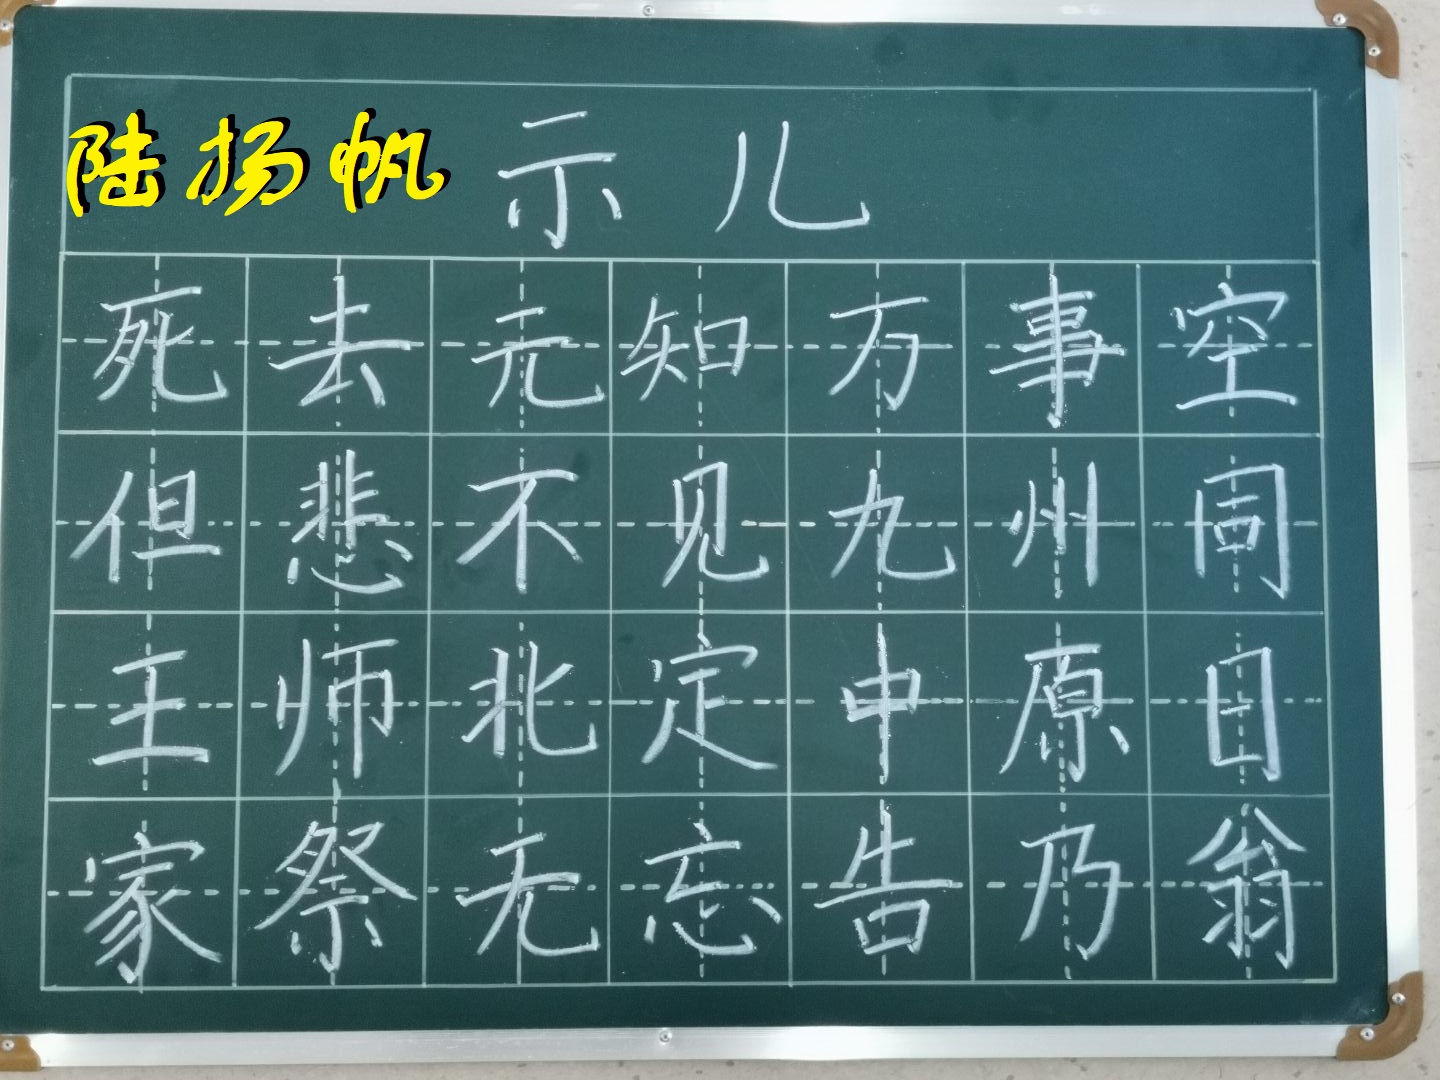 陆扬帆
示儿
死去元知万事空
但悲不见九州同
王师北定中原日
家祭无忘告乃翁